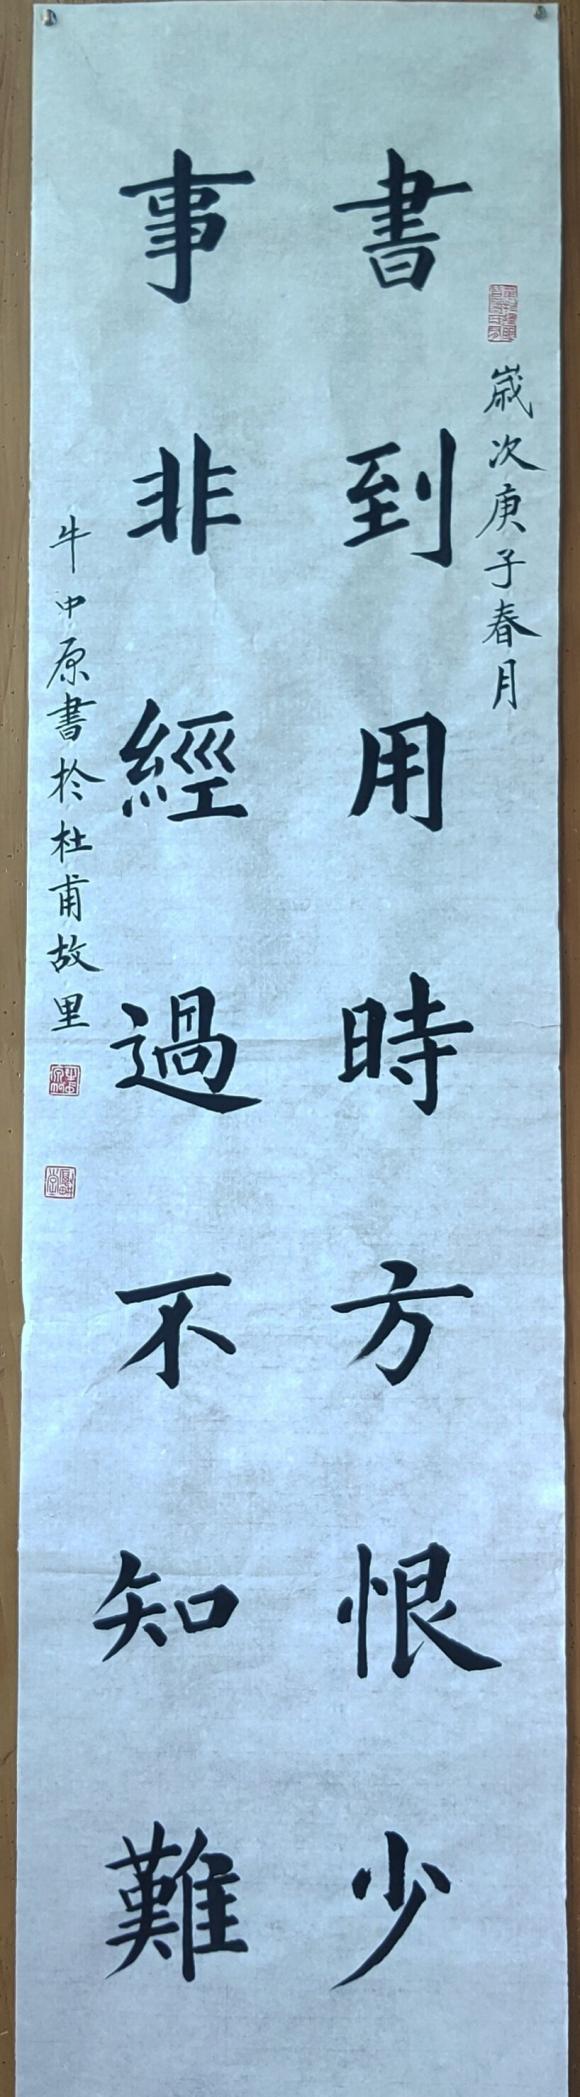 歲次庚子春月
書到用時方恨少
事非經過不知難
牛中原書於杜甫故里